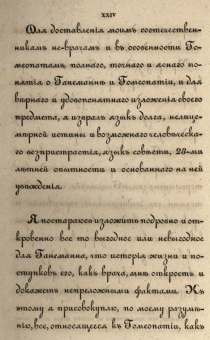 XXIV
Для доставленія моимъ соотечествен-
никамъ не-врачамъ и въ особенности Го-
меопатамъ полнаго, точнаго и яснаго по-
нятія о Ганеманнѣ и Гомеопатіи, и для
вѣрнаго и удобопонятнаго изложенія своего
предмета, я избралъ языкъ долга, нелице-
мѣрной истины и возможнаго человѣческа-
го безпристрастія, языкъ совѣсти, 28-ми
лѣтней опытности и основаннаго на ней
убѣжденія.
Я постараюсь изложить подробно и от-
кровенно все то выгодное или невыгодное
для Ганеманна, что исторія жизни и по-
ступковъ его, какъ врача, мнѣ откроетъ и
докажетъ непреложными фактами. Къ
этому я присовокуплю, по моему разумѣ-
нію, все, относящееся къ Гомеопатіи, какъ